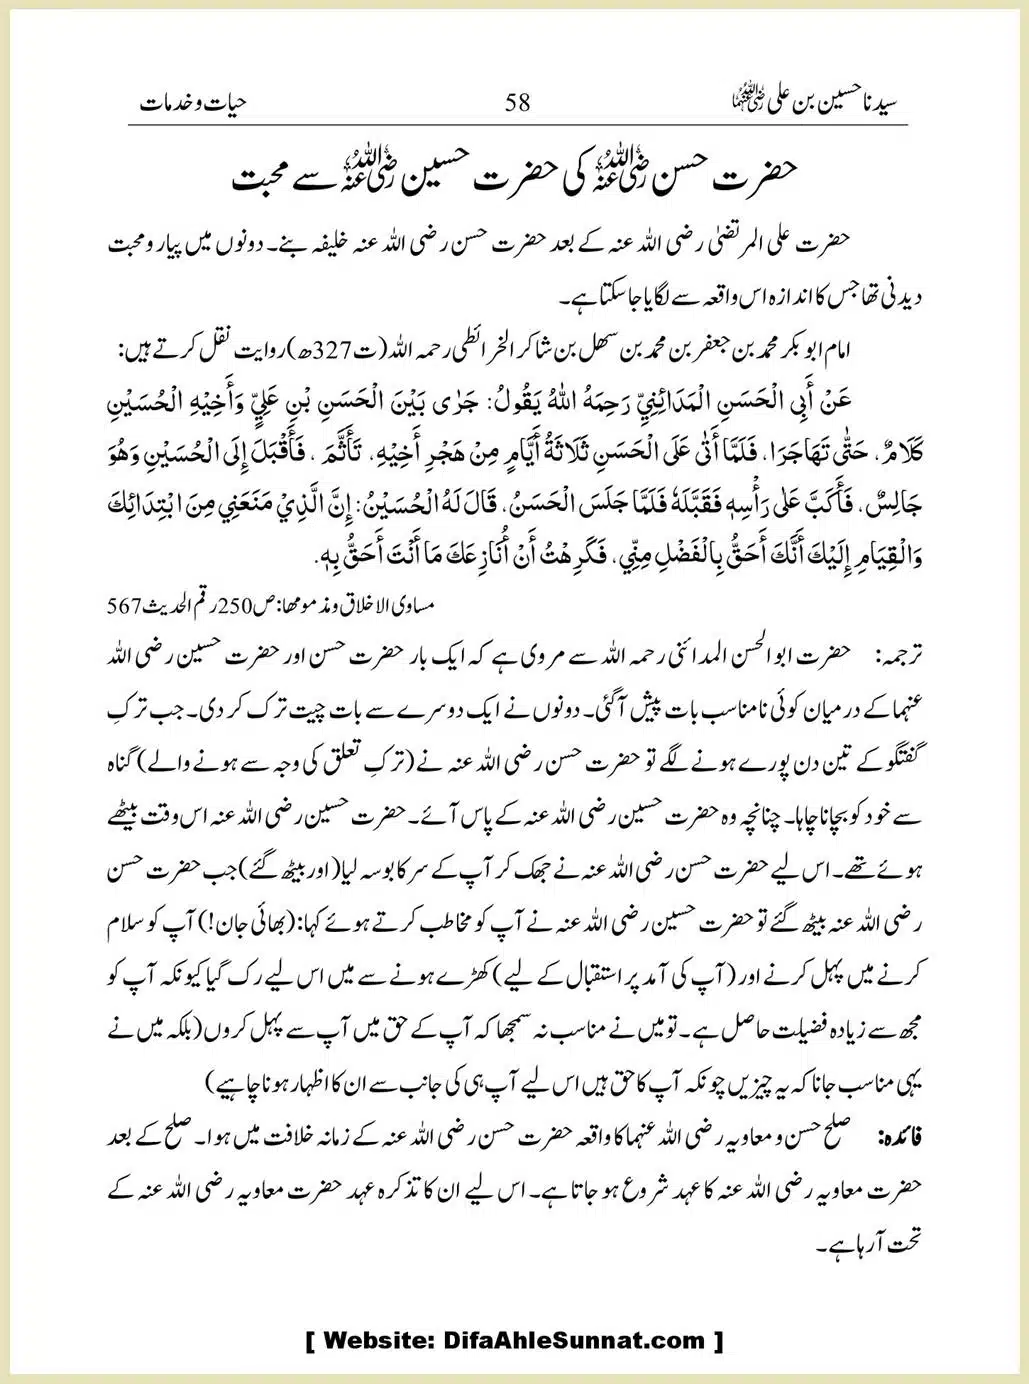 سیدنا حسین بن علی رضی اللہ عنہما 58 حیات و خدمات
حضرت حسن رضی اللہ عنہ کی حضرت حسین رضی اللہ عنہ سے محبت
حضرت علی المرتضیٰ رضی اللہ عنہ کے بعد حضرت حسن رضی اللہ عنہ خلیفہ بنے۔ دونوں میں پیار و محبت
دیدنی تھا جس کا اندازہ اس واقعہ سے لگایا جا سکتا ہے۔
امام ابو بکر محمد بن جعفر بن محمد بن سھل بن شاکر الخرائطی رحمہ اللہ (ت327ھ) روایت نقل کرتے ہیں:
عَنْ أَبِي الْحَسَنِ الْمَدَائِنِيِّ رَحِمَهُ اللهُ يَقُولُ: جَرٰى بَيْنَ الْحَسَنِ بْنِ عَلِيٍّ وَأَخِيْهِ الْحُسَيْنِ
كَلَامٌ، حَتّٰى تَهَاجَرَا، فَلَمَّا أَتٰى عَلَى الْحَسَنِ ثَلَاثَةُ أَيَّامٍ مِنْ هَجْرِ أَخِيْهِ، تَأَثَّمَ ، فَأَقْبَلَ إِلَى الْحُسَيْنِ وَهُوَ
جَالِسٌ، فَأَكَبَّ عَلٰى رَأْسِهٖ فَقَبَّلَهٗ فَلَمَّا جَلَسَ الْحَسَنُ، قَالَ لَهُ الْحُسَيْنُ: إِنَّ الَّذِيْ مَنَعَنِي مِنَ ابْتِدَائِكَ
وَالْقِيَامِ إِلَيْكَ أَنَّكَ أَحَقُّ بِالْفَضْلِ مِنِّي، فَكَرِهْتُ أَنْ أُنَازِعَكَ مَا أَنْتَ أَحَقُّ بِهٖ.
مساوی الاخلاق ومذمومھا: ص250 رقم الحدیث 567
ترجمہ: حضرت ابو الحسن المدائنی رحمہ اللہ سے مروی ہے کہ ایک بار حضرت حسن اور حضرت حسین رضی اللہ
عنہما کے درمیان کوئی نامناسب بات پیش آگئی۔ دونوں نے ایک دوسرے سے بات چیت ترک کر دی۔ جب ترکِ
گفتگو کے تین دن پورے ہونے لگے تو حضرت حسن رضی اللہ عنہ نے (ترکِ تعلق کی وجہ سے ہونے والے) گناہ
سے خود کو بچانا چاہا۔ چنانچہ وہ حضرت حسین رضی اللہ عنہ کے پاس آئے۔ حضرت حسین رضی اللہ عنہ اس وقت بیٹھے
ہوئے تھے۔ اس لیے حضرت حسن رضی اللہ عنہ نے جھک کر آپ کے سر کا بوسہ لیا (اور بیٹھ گئے) جب حضرت حسن
رضی اللہ عنہ بیٹھ گئے تو حضرت حسین رضی اللہ عنہ نے آپ کو مخاطب کرتے ہوئے کہا: (بھائی جان!) آپ کو سلام
کرنے میں پہل کرنے اور (آپ کی آمد پر استقبال کے لیے) کھڑے ہونے سے میں اس لیے رک گیا کیونکہ آپ کو
مجھ سے زیادہ فضیلت حاصل ہے۔ تو میں نے مناسب نہ سمجھا کہ آپ کے حق میں آپ سے پہل کروں (بلکہ میں نے
یہی مناسب جانا کہ یہ چیزیں چونکہ آپ کا حق ہیں اس لیے آپ ہی کی جانب سے ان کا اظہار ہونا چاہیے)
فائدہ: صلح حسن و معاویہ رضی اللہ عنہما کا واقعہ حضرت حسن رضی اللہ عنہ کے زمانہ خلافت میں ہوا۔ صلح کے بعد
حضرت معاویہ رضی اللہ عنہ کا عہد شروع ہو جاتا ہے۔ اس لیے ان کا تذکرہ عہد حضرت معاویہ رضی اللہ عنہ کے
تحت آرہا ہے۔
[ Website: DifaAhleSunnat.com ]